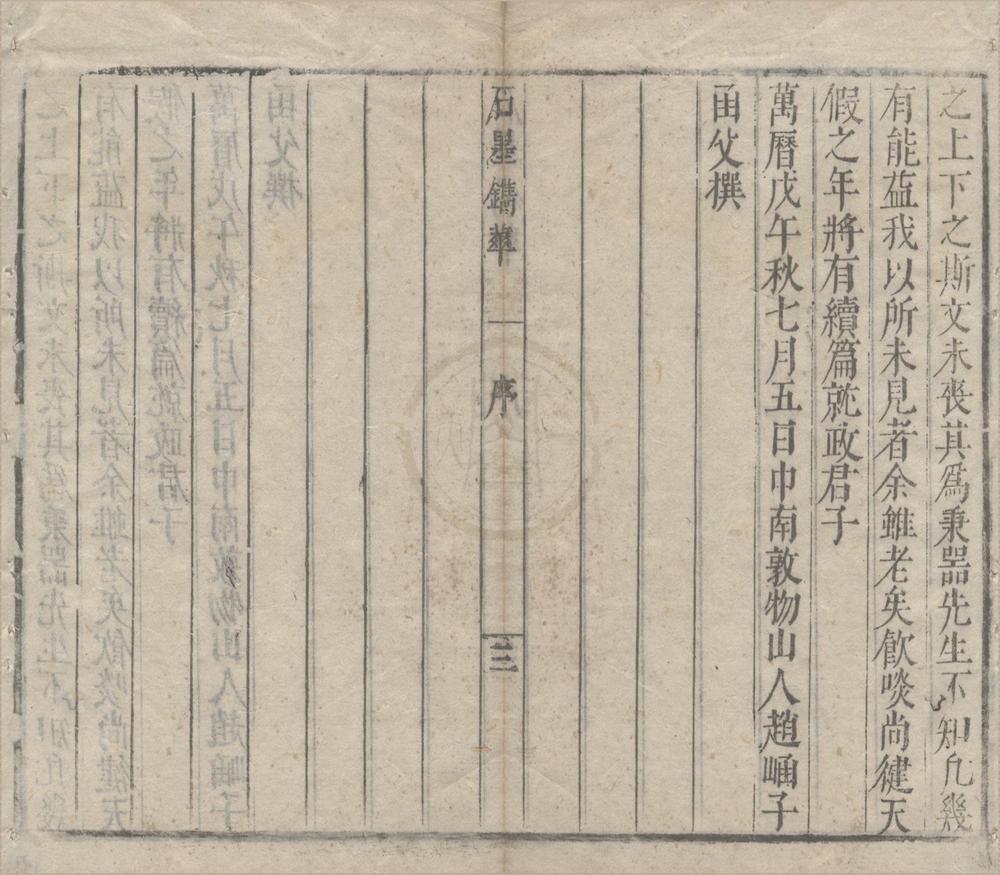 之上下之斯文未喪其爲秉器先生不知凢幾
有能益我以所未見者余雖老矣飮啖尚健天
假之年將有續篇就政君子
萬曆戊午秋七月五日中南敦物山人趙崡子
函父撰
石墨鐫華
序
三